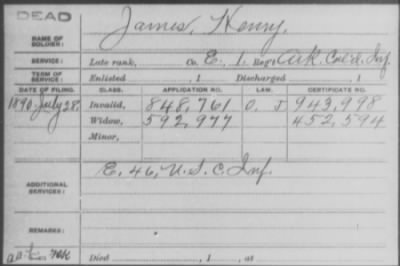 DEAD
NAME OF SOLDIER: James, Henry.
SERVICE: Late rank, Co. E, 1, Reg't Ark. Col'd. Inf.
TERM OF SERVICE: Enlisted , 1 Discharged , 1
DATE OF FILING. CLASS. APPLICATION NO. LAW. CERTIFICATE NO.
1890, July 28. Invalid, 848,761 O. J 943,998
Widow, 592,977 452,594
Minor,
ADDITIONAL SERVICES: E, 46, U.S.C. Inf.
REMARKS:
Died , 1 , at